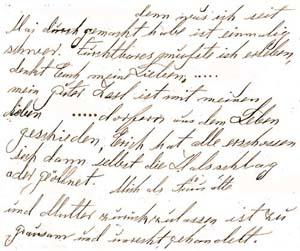 denn was ich seit
Mai durch gemacht habe ist einmalig
schwer. Furchtbares mußte ich erleben,
denkt Euch meine Lieben, .....
mein guter Karl ist mit meinen
lieben ..... dorfern aus dem Leben
geschieden, Erich hat alle erschossen
sich dann selbst die Halsschlag
ader geöffnet. Mich als alte
und Mutter zurückzulassen ist zu
grausam und unrecht gehandelt.